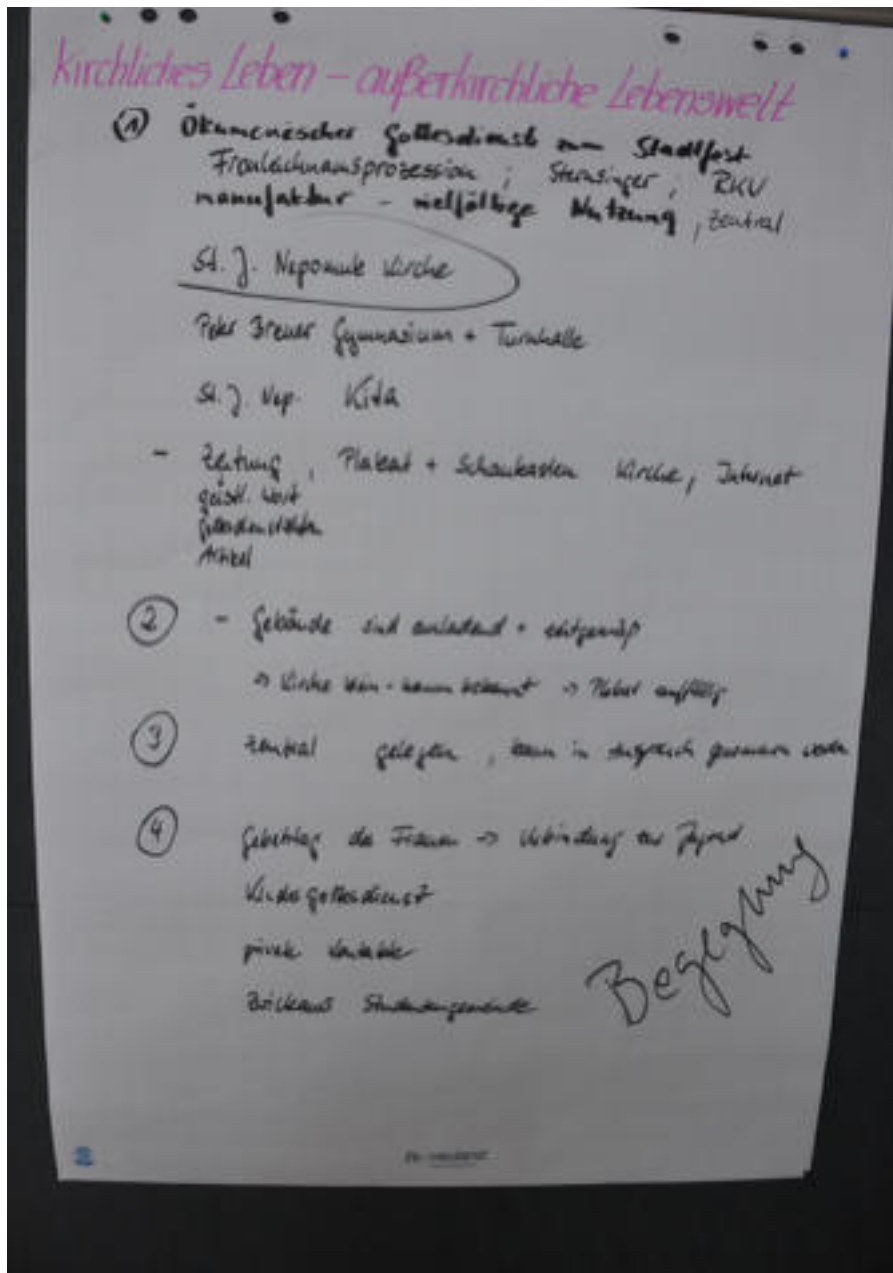 kirchliches Leben – außerkirchliche Lebenswelt
① Ökumenischer Gottesdienst zum Stadtfest
Fronleichnamsprozession ; Sternsinger , RKV
manufaktur – vielfältige Nutzung , zentral
St. J. Nepomuk Kirche
Peter Breuer Gymnasium + Turnhalle
St. J. Nep. Kita
- Zeitung , Plakat + Schaukasten Kirche, Internet
geistl. Wort
Gottesdienstzeiten
Artikel
② - Gebäude sind einladend + zeitgemäß
-> Kirche kaum bekannt ->
③ zentral gelegen , kann in genommen werden
④ Gebetstag der Frauen -> Verbindung zur Jugend
Kindergottesdienst
private Kontakte
Zwickaus Studentengemeinde
Begegnung